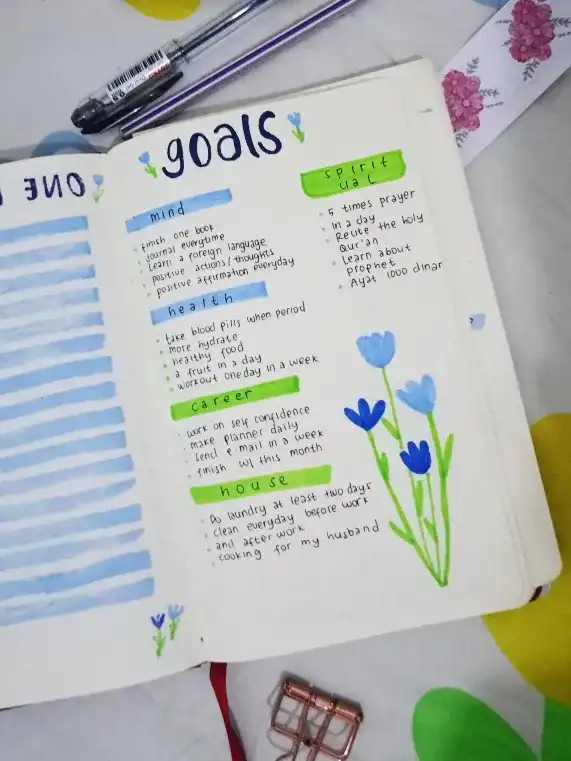 ONE
goals
mind
finish one book
Journal everytime
Learn a foreign language
positive actions/thoughts
positive affirmation everyday
health
take blood pills when period
more hydrate
healthy food
a fruit in a day
workout oneday in a week
career
work on self confidence
make planner daily
send e mail in a week
finish WJ this month
house
Do laundry at least two days
clean everyday before work
and after work
cooking for my husband
spirit
ual
5 times prayer
in a day
Recite the holy
Qur'an
Learn about
prophet
Ayat 1000 dinar